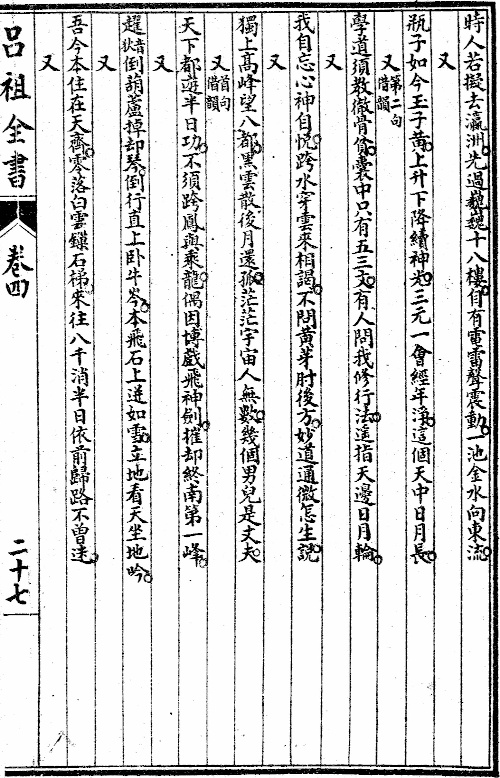 時人若擬去瀛洲先過巍巍十八樓自有電雷聲震動一池金水向東流
又
瓶子如今玉子黃上升下降續神光三元一會經年淨這個天中日月長
又第二句借韻
學道須教徹骨貧囊中只有五三文有人問我修行法遙指天邊日月輪
又
我自忘心神自悅跨水穿雲來相謁不問黃芽肘後方妙道通微怎生說
又
獨上高峰望八都黑雲散後月還孤茫茫宇宙人無數幾個男兒是丈夫
又首句借韻
天下都遊半日功不須跨鳳與乘龍偶因博戲飛神劍摧却終南第一峰
又
趯音狄倒葫蘆掉却琴倒行直上臥牛岑水飛石上迸如雪立地看天坐地吟
又
吾今本住在天齊零落白雲鏁石梯來往八千消半日依前歸路不曾迷
又
呂祖全書 卷四 二十七